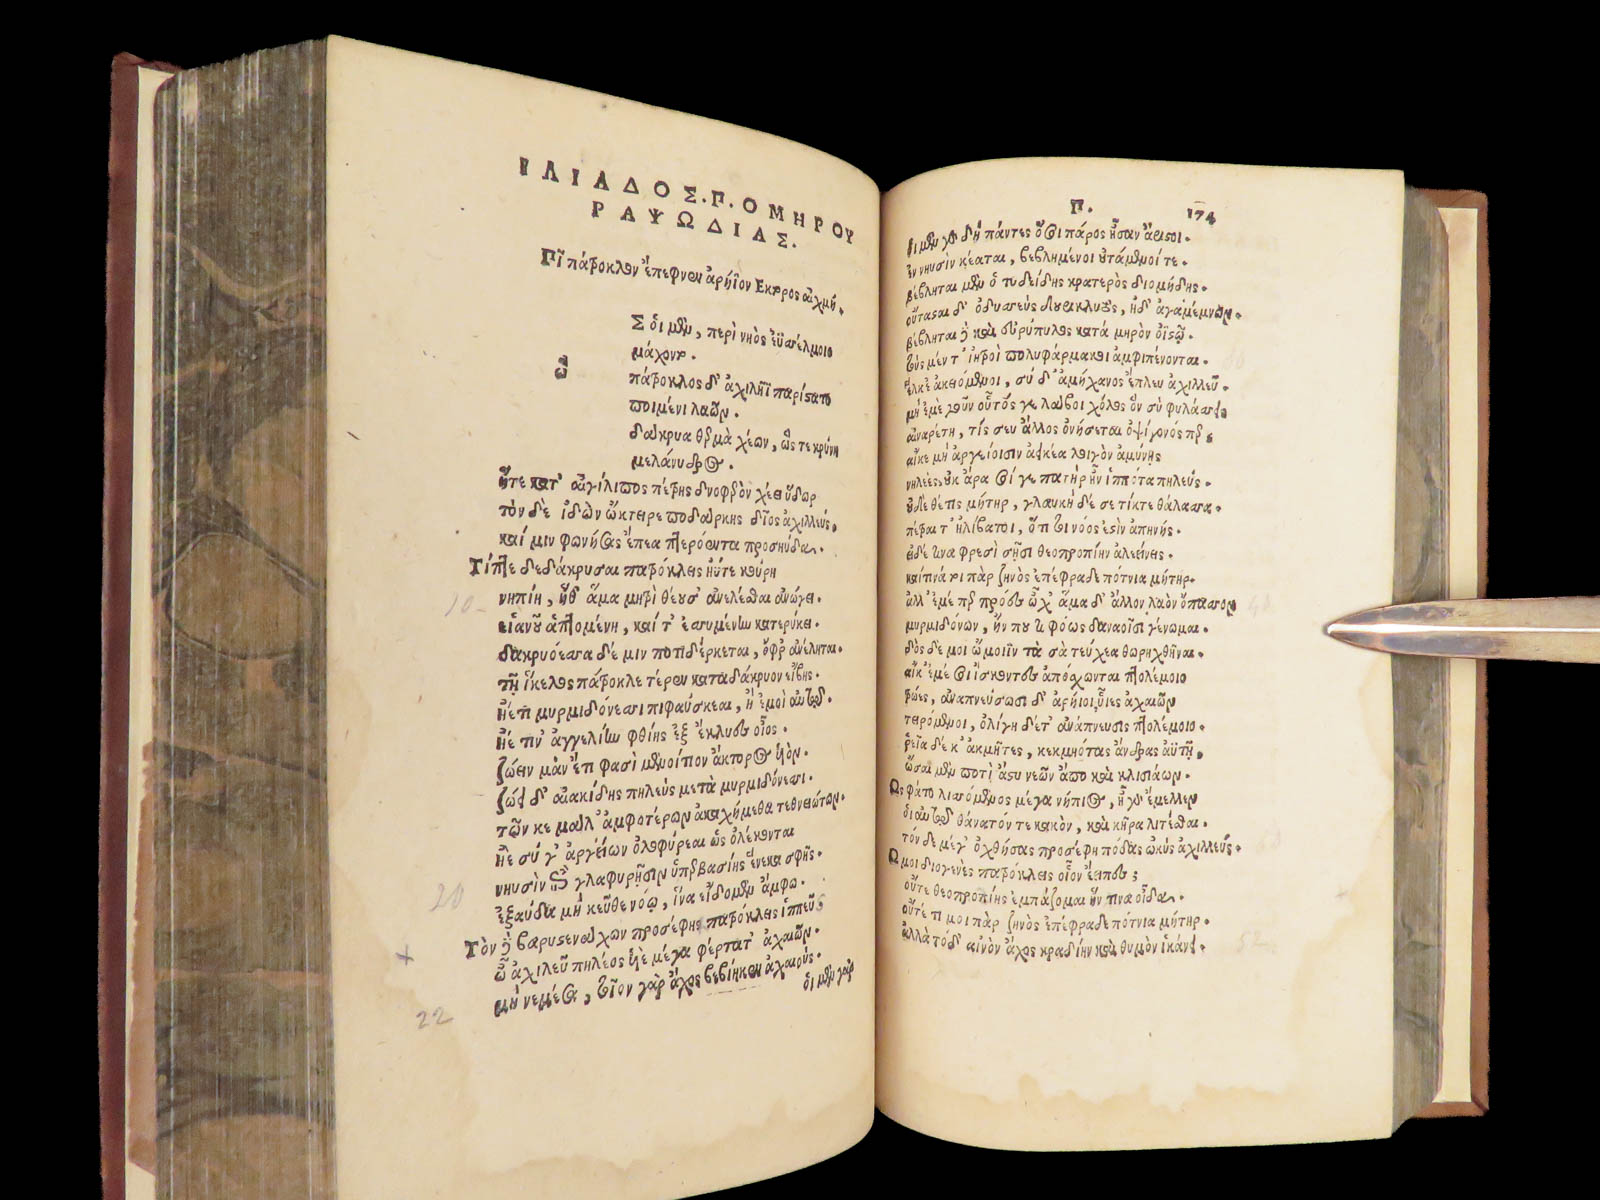 ΙΛΙΑΔΟΣ.Π.ΟΜΗΡΟΥ
ΡΑΨΩΔΙΑΣ.
Πῖ πάτροκλον ἔπεφνεν ἀρήϊον Ἕκτορος αἰχμή.
ὣ
Σ οἱ μὲν, περὶ νηὸς ἐϋσσέλμοιο
μάχοντο.
πάτροκλος δ' ἀχιλῆϊ παρίστατο
ποιμένι λαῶν.
δάκρυα θερμὰ χέων, ὥς τε κρήνη
μελάνυδρος.
ἥτε κατ' αἰγίλιπος πέτρης δνοφερὸν χέει ὕδωρ
τὸν δὲ ἰδὼν ᾤκτειρε ποδάρκης δῖος ἀχιλλεύς,
καί μιν φωνήσας ἔπεα πτερόεντα προσηύδα.
Τίπτε δεδάκρυσαι πατρόκλεις ἠΰτε κούρη
10-
νηπίη, ἥθ' ἅμα μητρὶ θέουσ' ἀνελέσθαι ἀνώγει.
εἱανοῦ ἁπτομένη, καί τ' ἐσσυμένην κατερύκει.
δακρυόεσσα δέ μιν ποτιδέρκεται, ὄφρ' ἀνέληται.
τῇ ἴκελος πάτροκλε τέρεν κατὰ δάκρυον εἴβεις.
ἠέ τι μυρμιδόνεσσι πιφαύσκεαι, ἢ ἐμοὶ αὐτῷ.
ἠέ τιν' ἀγγελίην φθίης ἐξ ἔκλυες οἶος.
ζώειν μὰν ἔτι φασὶ μενοίτιον ἄκτορος υἱὸν.
ζώει δ' αἰακίδης πηλεὺς μετὰ μυρμιδόνεσσι.
τῶν κε μάλ' ἀμφοτέρων ἀκαχήμεθα τεθνειώτων.
ἠὲ σύ γ' ἀργείων ὀλοφύρεαι ὡς ὀλέκονται
νηυσὶν ἔπι γλαφυρῇσιν ὑπερβασίης ἕνεκα σφῆς.
20
ἐξαύδα μὴ κεῦθε νόῳ, ἵνα εἴδομεν ἄμφω.
Τὸν δὲ βαρυστενάχων προσέφης πατρόκλεις ἱππεῦ,
ὦ ἀχιλεῦ πηλέος υἱὲ μέγα φέρτατ' ἀχαιῶν.
μὴ νεμέσα, τοῖον γὰρ ἄχος βεβίηκεν ἀχαιούς.
22
οἱ μὲν γὰρ
Π. 174
οἱ μὲν γὰρ δὴ πάντες ὅσοι πάρος ἦσαν ἄριστοι.
ἐν νηυσὶν κέαται, βεβλημένοι οὐτάμενοί τε.
βέβληται μὲν ὁ τυδείδης κρατερὸς διομήδης.
οὔτασται δ' ὀδυσσεὺς δουρικλυτὸς, ἠδ' ἀγαμέμνων.
βέβληται δὲ καὶ εὐρύπυλος κατὰ μηρὸν ὀϊστῷ.
τοὺς μέν τ' ἰητροὶ πολυφάρμακοι ἀμφιπένονται.
ἕλκε' ἀκειόμενοι, σὺ δ' ἀμήχανος ἔπλευ ἀχιλλεῦ.
μὴ ἐμὲ γοῦν οὗτός γε λάβοι χόλος ὃν σὺ φυλάσσεις
αἰναρέτη, τίς σευ ἄλλος ὀνήσεται ὀψίγονός περ,
αἴκε μὴ ἀργείοισιν ἀεικέα λοιγὸν ἀμύνῃς
νηλεές, οὐκ ἄρα σοί γε πατὴρ ἦν ἱππότα πηλεύς.
οὐδὲ θέτις μήτηρ, γλαυκὴ δέ σε τίκτε θάλασσα.
πέτραι τ' ἠλίβατοι, ὅτι τοι νόος ἐστὶν ἀπηνής.
εἰ δέ τινα φρεσὶ σῇσι θεοπροπίην ἀλεείνεις.
καί τινά τοι πὰρ ζηνὸς ἐπέφραδε πότνια μήτηρ.
ἀλλ' ἐμέ περ πρόες ὦχ' ἅμα δ' ἄλλον λαὸν ὄπασσον
μυρμιδόνων, ἤν πού τι φόως δαναοῖσι γένωμαι.
δὸς δέ μοι ὤμοιϊν τὰ σὰ τεύχεα θωρηχθῆναι.
αἴκ' ἐμέ σοι ἴσκοντες ἀπόσχωνται πτολέμοιο
τρῶες, ἀναπνεύσωσι δ' ἀρήϊοι υἷες ἀχαιῶν
τειρόμενοι, ὀλίγη δέ τ' ἀνάπνευσις πτολέμοιο.
ῥεῖα δέ κ' ἀκμῆτες, κεκμηότας ἄνδρας ἀϋτῇ,
ὤσαιμεν ποτὶ ἄστυ νεῶν ἄπο καὶ κλισιάων.
Ὣς φάτο λισσόμενος μέγα νήπιος, ἦ γὰρ ἔμελλεν
οἷ αὐτῷ θάνατόν τε κακὸν, καὶ κῆρα λιτέσθαι.
τόν δε μέγ' ὀχθήσας προσέφη πόδας ὠκὺς ἀχιλλεύς.
Ὤμοι διογενὲς πατρόκλεις οἷον ἔειπες;
οὔτε θεοπροπίης ἐμπάζομαι ἥν τινα οἶδα.
οὔτέ τί μοι πὰρ ζηνὸς ἐπέφραδε πότνια μήτηρ.
52
ἀλλὰ τόδ' αἰνὸν ἄχος κραδίην καὶ θυμὸν ἱκάνει.